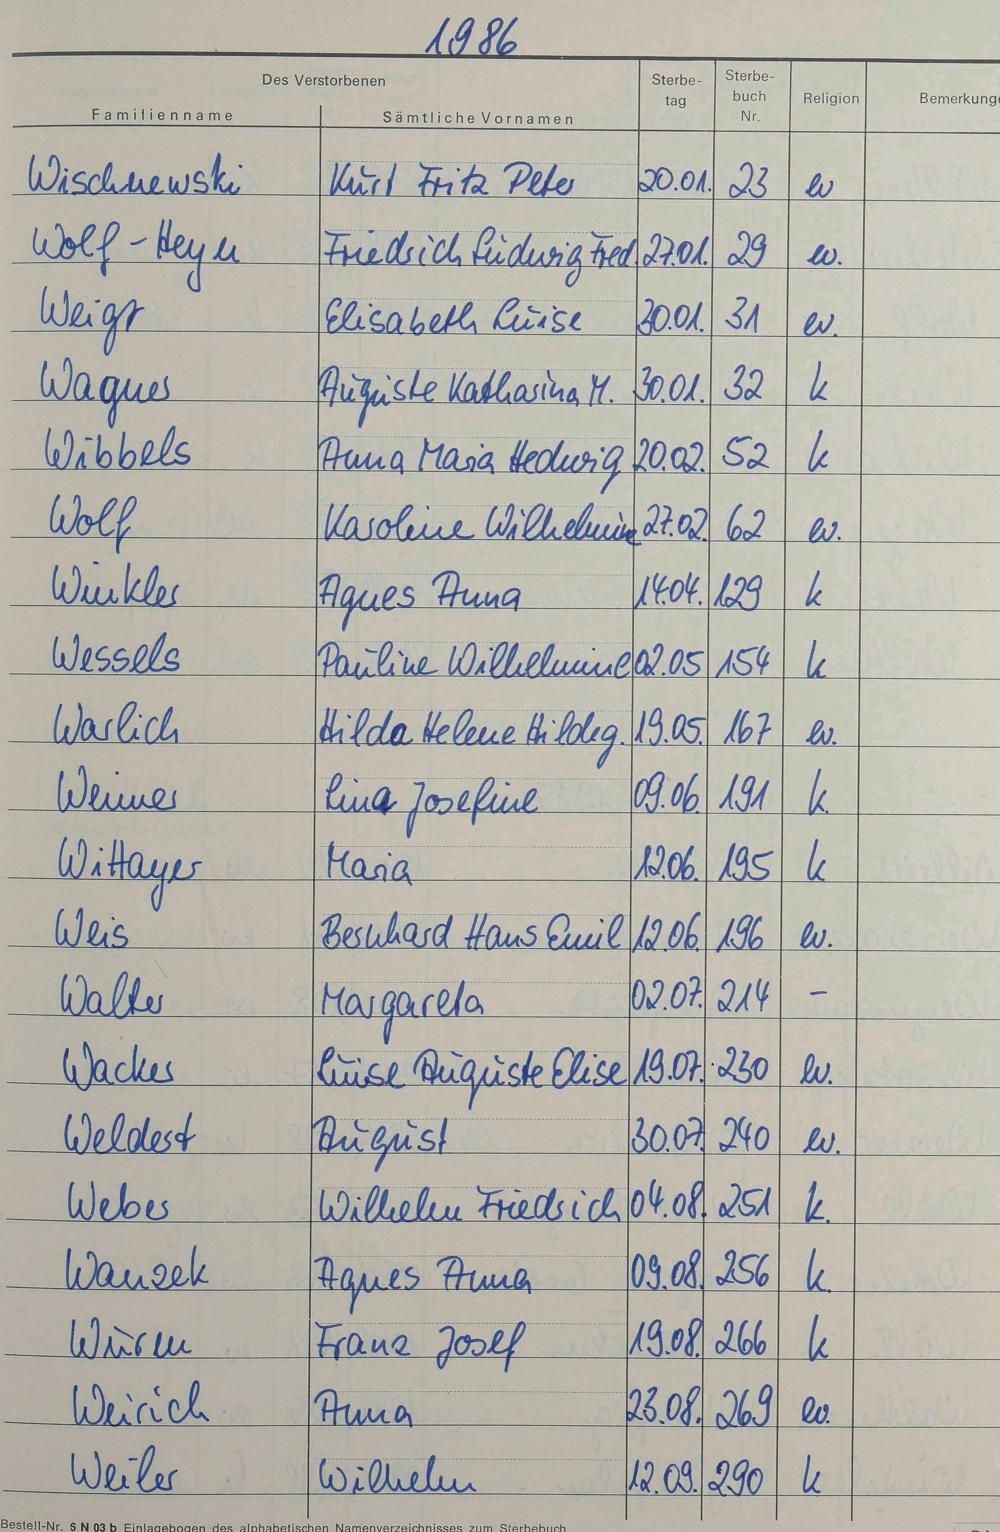 1986
Des Verstorbenen
Sterbe-
tag
Sterbe-
buch
Nr.
Religion
Familienname
Sämtliche Vornamen
Wischnewski Kurt Fritz Peter 20.01. 23 ev
Wolf-Heyn Friedrich Ludwig Fred. 27.01. 29 ev.
Weigt Elisabeth Luise 30.01. 31 ev.
Wagner Auguste Katharina M. 30.01. 32 k
Wibbels Anna Maria Hedwig 20.02. 52 k
Wolf Karoline Wilhelmine 27.02. 62 ev.
Winkler Agnes Anna 14.04. 129 k
Wessels Pauline Wilhelmine 02.05 154 k
Warlich Hilda Helene Hildeg. 19.05. 167 ev.
Weimer Lina Josefine 09.06. 191 k.
Wittayer Maria 12.06. 195 k
Weis Bernhard Hans Emil 12.06. 196 ev.
Walter Margareta 02.07. 214 -
Wacker Luise Auguste Elise 19.07. 230 ev.
Weldert August 30.07. 240 ev.
Weber Wilhelm Friedrich 04.08. 251 k.
Wanzek Agnes Anna 09.08. 256 k.
Wurm Franz Josef 19.08. 266 k
Weirich Anna 23.08. 269 ev.
Weiler Wilhelm 12.09. 290 k
Bestell-Nr. 6 N 03 b Einlagebogen des alphabetischen Namenverzeichnisses zum Sterbebuch